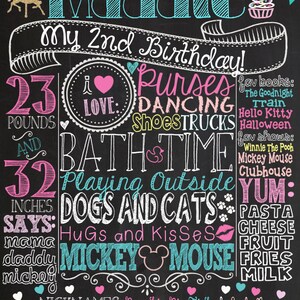 My 2nd Birthday!
23
POUNDS
AND
32
INCHES
SAYS:
mama
daddy
mickey
i ♥
LOVE:
Purses
DANCING
Shoes TRUCKS
BATH TIME
Playing Outside
DOGS AND CATS
HuGs and KisSeS
MICKEY MOUSE
fav books:
The Goodnight
Train
Hello Kitty
Halloween
fav shows:
Winnie The Pooh
Mickey Mouse
Clubhouse
YUM:
PASTA
CHEESE
FRUIT
FRIES
MILK